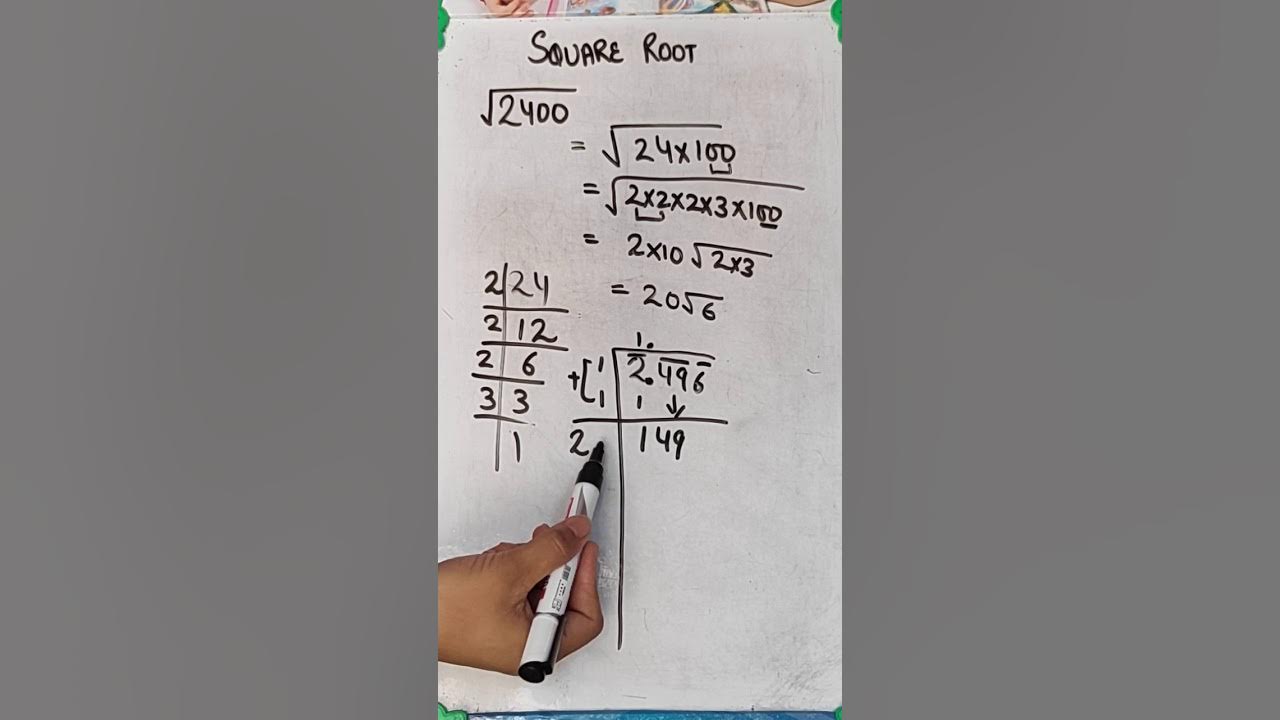 SQUARE ROOT
√2400
= √24×100
= √2×2×2×3×100
= 2×10√2×3
= 20√6
2|24
2|12
2|6
3|3
|1
1.
+[1 2.496
1 1 ↓
2 149